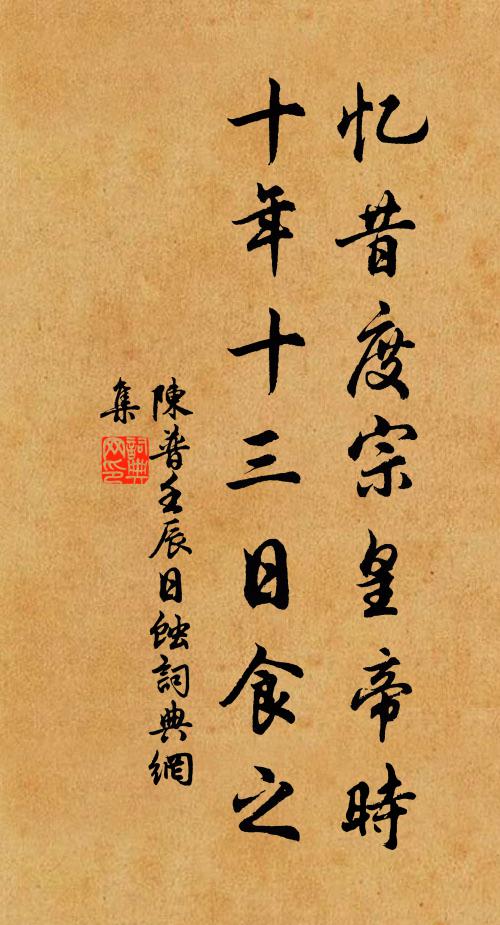 忆昔度宗皇帝時
十年十三日食之
陳普壬辰日蝕詞典網
集
詞典网印